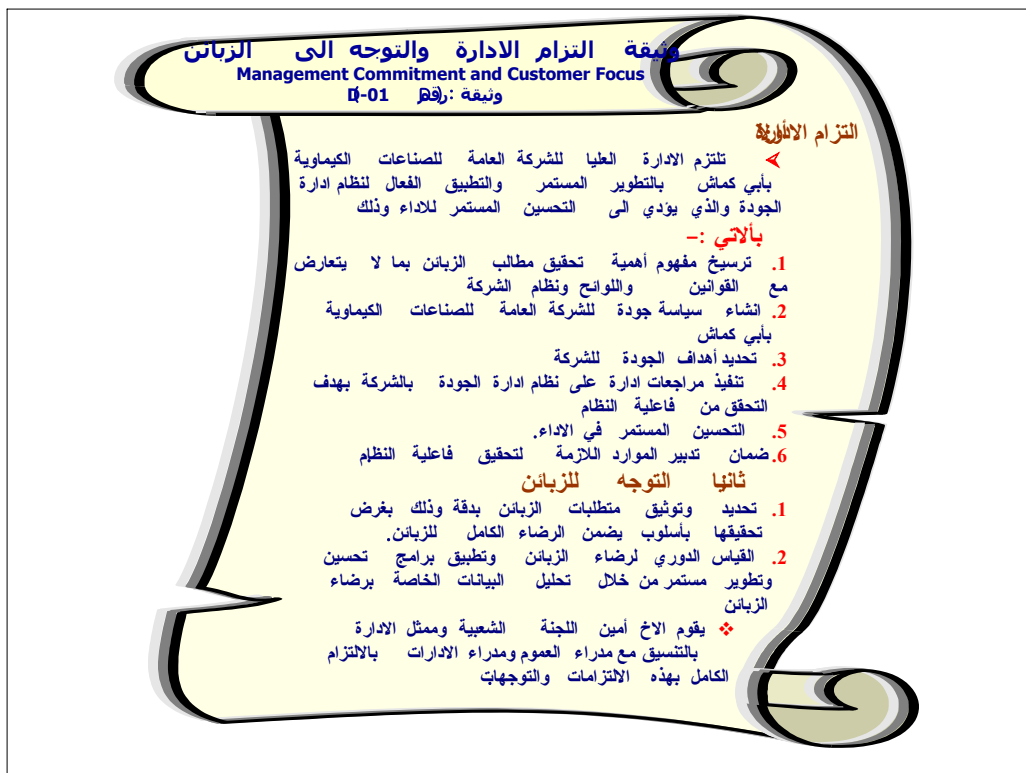 وثيقة التزام الادارة والتوجه الى الزبائن
Management Commitment and Customer Focus
وثيقة رقم: (D-01)
التزام الادارة
➢ تلتزم الادارة العليا للشركة العامة للصناعات الكيماوية
بأبي كماش بالتطوير المستمر والتطبيق الفعال لنظام ادارة
الجودة والذي يؤدي الى التحسين المستمر للاداء وذلك
بألاتي :-
1. ترسيخ مفهوم أهمية تحقيق مطالب الزبائن بما لا يتعارض
مع القوانين واللوائح ونظام الشركة
2. انشاء سياسة جودة للشركة العامة للصناعات الكيماوية
بأبي كماش
3. تحديد أهداف الجودة للشركة
4. تنفيذ مراجعات ادارة على نظام ادارة الجودة بالشركة بهدف
التحقق من فاعلية النظام
5. التحسين المستمر في الاداء.
6. ضمان تدبير الموارد اللازمة لتحقيق فاعلية النظام
ثانيا التوجه للزبائن
1. تحديد وتوثيق متطلبات الزبائن بدقة وذلك بغرض
تحقيقها بأسلوب يضمن الرضاء الكامل للزبائن.
2. القياس الدوري لرضاء الزبائن وتطبيق برامج تحسين
وتطوير مستمر من خلال تحليل البيانات الخاصة برضاء
الزبائن
❖ يقوم الاخ أمين اللجنة الشعبية وممثل الادارة
بالتنسيق مع مدراء العموم ومدراء الادارات بالالتزام
الكامل بهذه الالتزامات والتوجهات